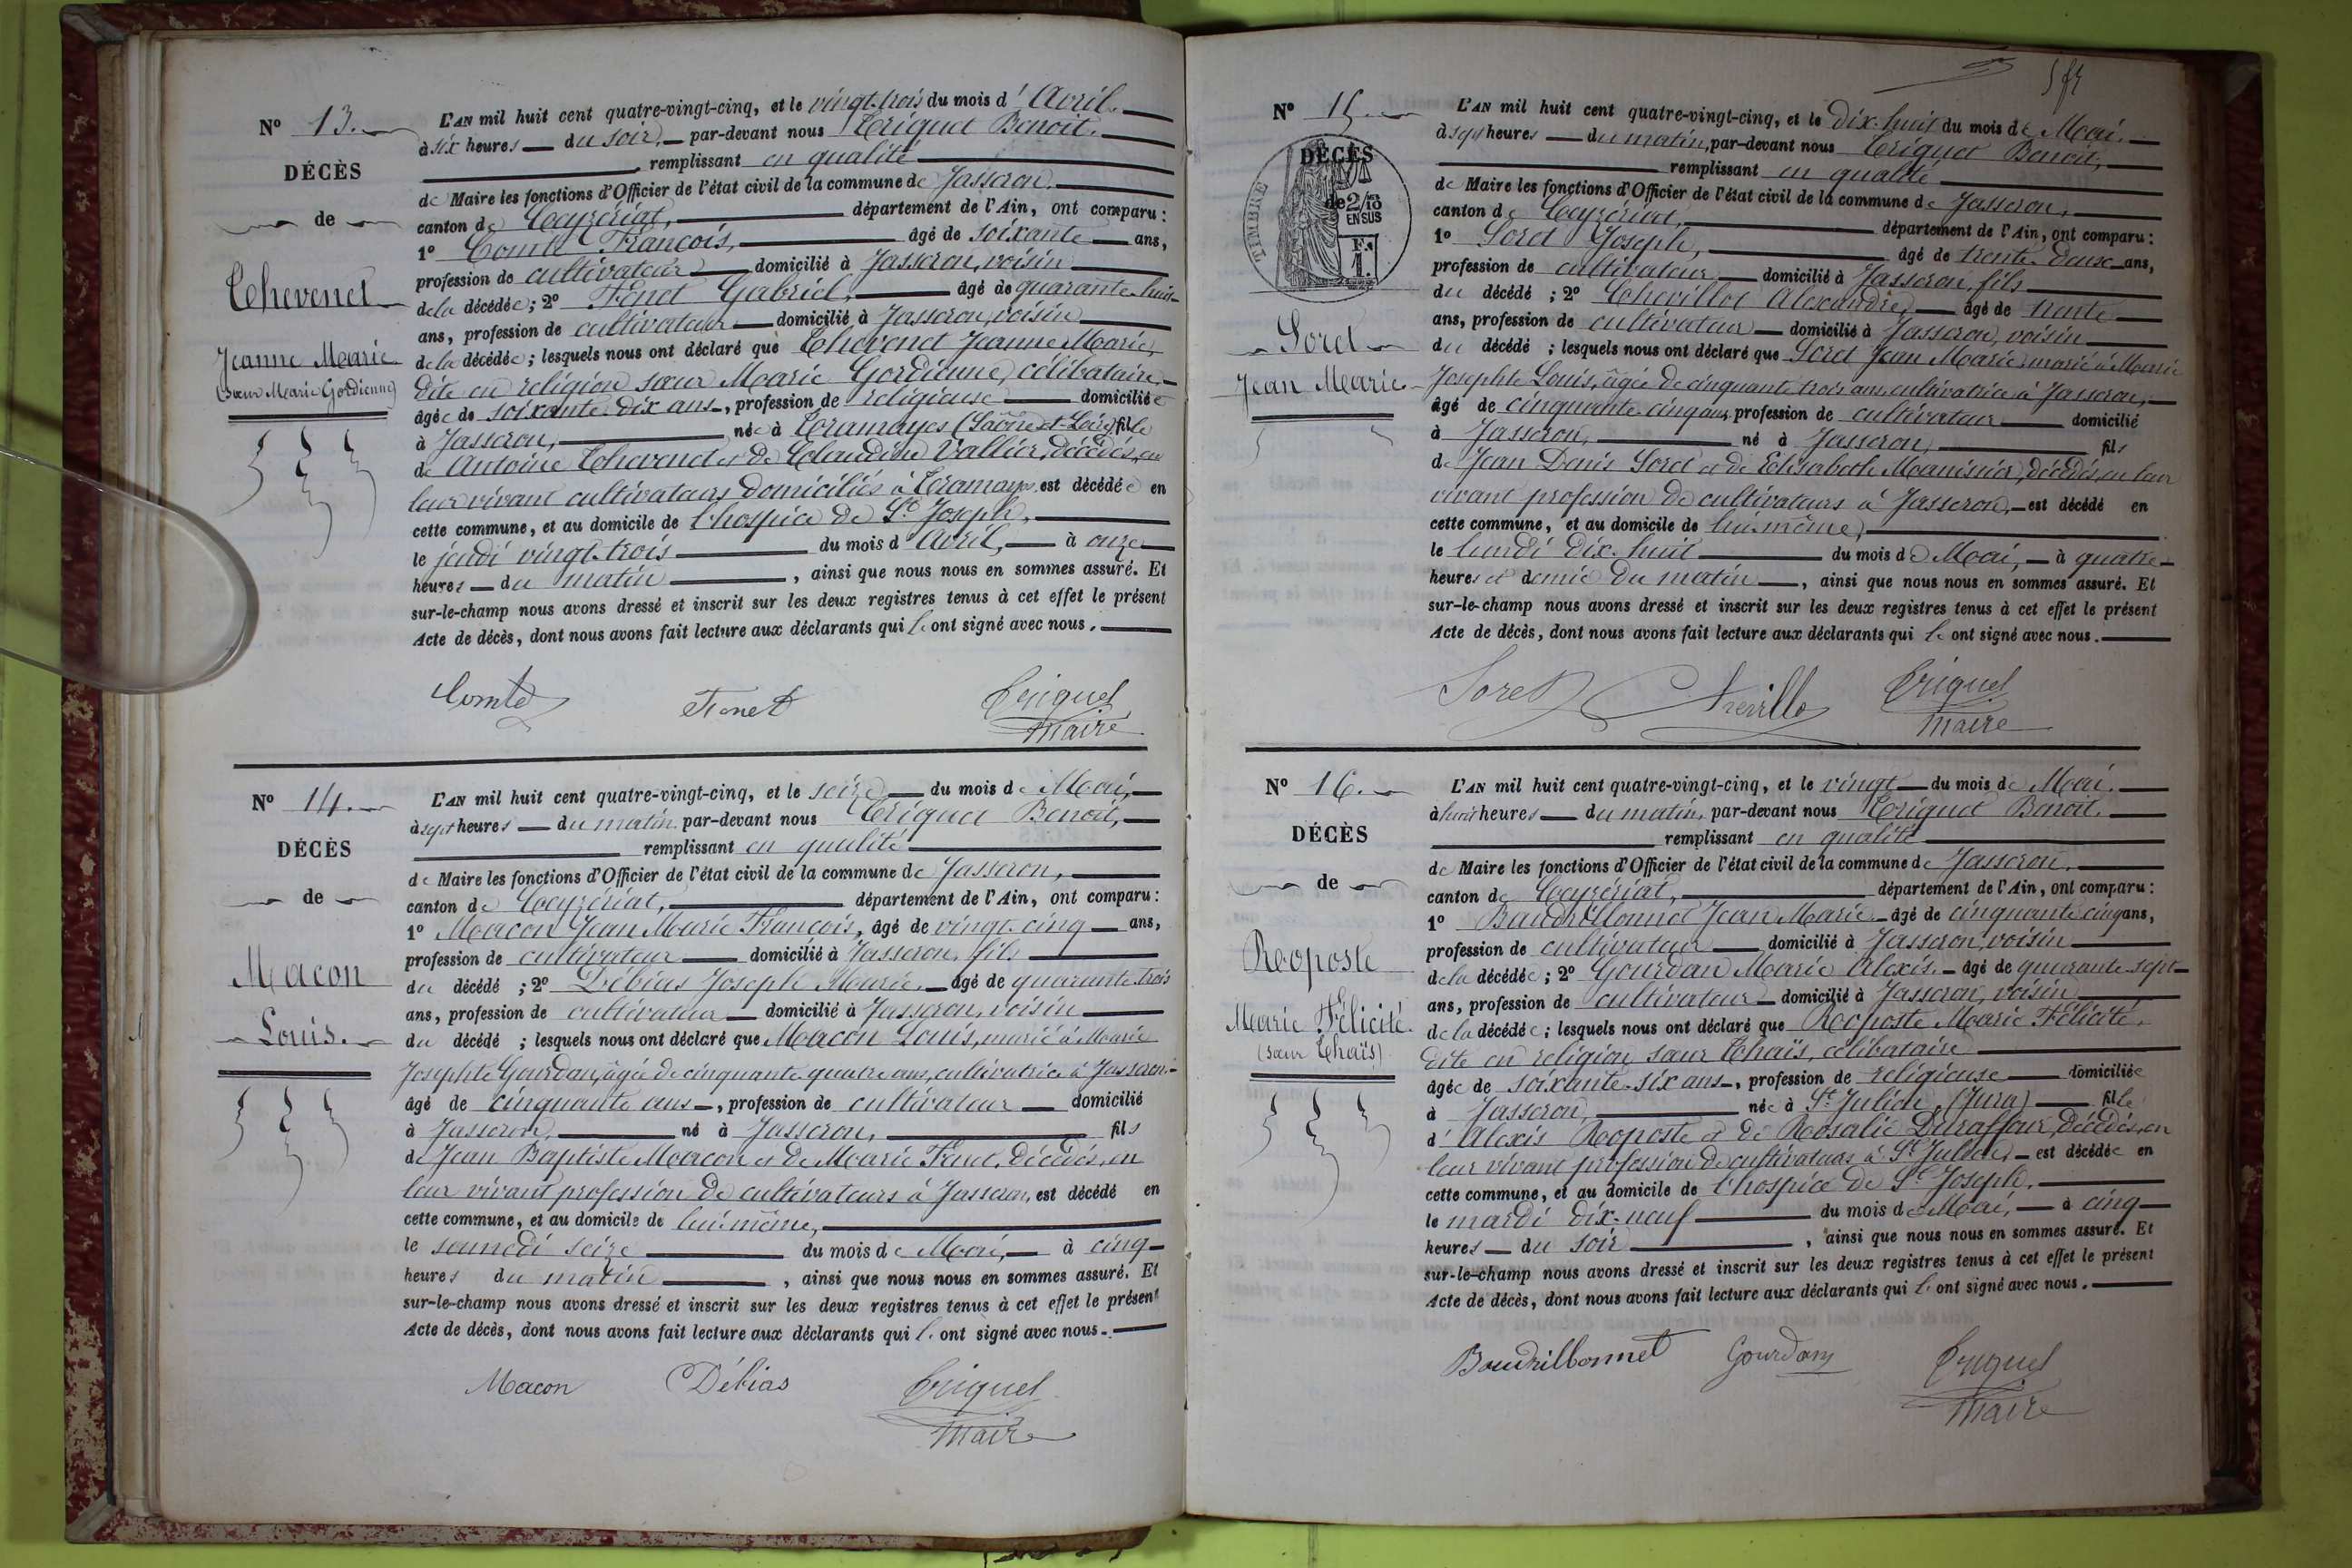 N° 13.
DÉCÈS
de
Thevenet
Jeanne Marie
(Sœur Marie Gordienne)
L'AN mil huit cent quatre-vingt-cinq, et le vingt-trois du mois d'Avril.
à six heures du soir, par-devant nous Triquet Benoit,
remplissant en qualité
de Maire les fonctions d'Officier de l'état civil de la commune de Jasseron,
canton de Ceyzériat, département de l'Ain, ont comparu :
1° Comte François, âgé de soixante ans,
profession de cultivateur domicilié à Jasseron, voisin
de la décédée ; 2° Fenet Gabriel, âgé de quarante-huit
ans, profession de cultivateur domicilié à Jasseron, voisin
de la décédée ; lesquels nous ont déclaré que Thevenet Jeanne Marie,
dite en religion sœur Marie Gordienne, célibataire,
âgée de soixante-dix ans, profession de religieuse domiciliée
à Jasseron, née à Tramayes (Saône-et-Loire) fille
de Antoine Thevenet et de Claudine Vallier, décédés, en
leur vivant cultivateurs domiciliés à Tramayes est décédée en
cette commune, et au domicile de l'hospice de St Joseph,
le jeudi vingt-trois du mois d'Avril, à onze
heures du matin, ainsi que nous nous en sommes assuré. Et
sur-le-champ nous avons dressé et inscrit sur les deux registres tenus à cet effet le présent
Acte de décès, dont nous avons fait lecture aux déclarants qui l'ont signé avec nous.
Comte Fenet Triquet
Maire
N° 14.
DÉCÈS
de
Macon
Louis.
L'AN mil huit cent quatre-vingt-cinq, et le seize du mois de Mai,
à sept heures du matin par-devant nous Triquet Benoit,
remplissant en qualité
de Maire les fonctions d'Officier de l'état civil de la commune de Jasseron,
canton de Ceyzériat, département de l'Ain, ont comparu :
1° Macon Jean Marie François, âgé de vingt-cinq ans,
profession de cultivateur domicilié à Jasseron, fils
du décédé ; 2° Débias Joseph Marie, âgé de quarante-trois
ans, profession de cultivateur domicilié à Jasseron, voisin
du décédé ; lesquels nous ont déclaré que Macon Louis, marié à Marie
Josephte Gourdan, âgée de cinquante quatre ans, cultivatrice à Jasseron,
âgé de cinquante ans, profession de cultivateur domicilié
à Jasseron, né à Jasseron, fils
de Jean Baptiste Macon et de Marie Fenet, décédés, en
leur vivant profession de cultivateurs à Jasseron, est décédé en
cette commune, et au domicile de lui-même,
le samedi seize du mois de Mai, à cinq
heures du matin, ainsi que nous nous en sommes assuré. Et
sur-le-champ nous avons dressé et inscrit sur les deux registres tenus à cet effet le présent
Acte de décès, dont nous avons fait lecture aux déclarants qui l'ont signé avec nous.
Macon Débias Triquet
Maire
N° 15.
DÉCÈS
de
TIMBRE
2/10
EN SUS
F.
1.
Soret
Jean Marie
L'AN mil huit cent quatre-vingt-cinq, et le dix-huit du mois de Mai.
à sept heures du matin, par-devant nous Triquet Benoit,
remplissant en qualité
de Maire les fonctions d'Officier de l'état civil de la commune de Jasseron,
canton de Ceyzériat, département de l'Ain, ont comparu :
1° Soret Joseph, âgé de trente-deux ans,
profession de cultivateur domicilié à Jasseron, fils
du décédé ; 2° Chevillot Alexandre, âgé de trente
ans, profession de cultivateur domicilié à Jasseron, voisin
du décédé ; lesquels nous ont déclaré que Soret Jean Marie, marié à Marie
Josephte Louis, âgée de cinquante trois ans, cultivatrice à Jasseron,
âgé de cinquante-cinq ans, profession de cultivateur domicilié
à Jasseron, né à Jasseron, fils
de Jean Denis Soret et de Elisabeth décédés, en leur
vivant profession de cultivateurs à Jasseron, est décédé en
cette commune, et au domicile de lui-même,
le lundi dix-huit du mois de Mai, à quatre
heures et demie du matin, ainsi que nous nous en sommes assuré. Et
sur-le-champ nous avons dressé et inscrit sur les deux registres tenus à cet effet le présent
Acte de décès, dont nous avons fait lecture aux déclarants qui l'ont signé avec nous.
Soret Triquet
Maire
N° 16.
DÉCÈS
de
Roposte
Marie Félicité.
(sœur Thaïs)
L'AN mil huit cent quatre-vingt-cinq, et le vingt du mois de Mai.
à huit heures du matin, par-devant nous Triquet Benoit.
remplissant en qualité
de Maire les fonctions d'Officier de l'état civil de la commune de Jasseron.
canton de Ceyzériat, département de l'Ain, ont comparu :
1° Baudrillonnet Jean Marie âgé de cinquante cinq ans,
profession de cultivateur domicilié à Jasseron, voisin
de la décédée ; 2° Gourdan Marie Alexis, âgé de quarante-sept
ans, profession de cultivateur domicilié à Jasseron, voisin
de la décédée ; lesquels nous ont déclaré que Roposte Marie Félicité,
dite en religion sœur Thaïs, célibataire
âgée de soixante-six ans, profession de religieuse domiciliée
à Jasseron, née à St Julien, (Jura) fille
d'Alexis Roposte et de Rosalie Duraffour, décédés, en
leur vivant profession de cultivateurs à St Julien, est décédée en
cette commune, et au domicile de l'hospice de St Joseph,
le mardi dix-neuf du mois de Mai, à cinq
heures du soir, ainsi que nous nous en sommes assuré. Et
sur-le-champ nous avons dressé et inscrit sur les deux registres tenus à cet effet le présent
Acte de décès, dont nous avons fait lecture aux déclarants qui l'ont signé avec nous.
Baudrillonnet Gourdan Triquet
Maire